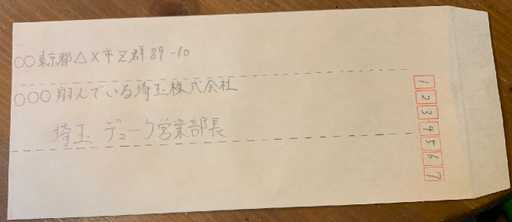 〇〇東京都△×市区群89-10
〇〇〇翔んでいる埼玉株式会社
埼玉 デューク営業部長
1234567